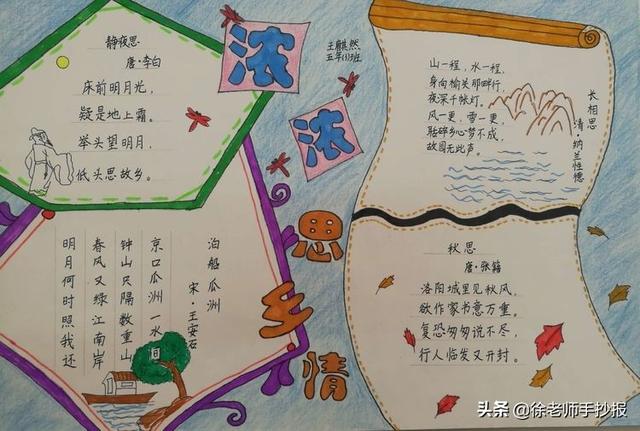 静夜思
唐·李白
床前明月光，
疑是地上霜。
举头望明月，
低头思故乡。
浓浓思乡情
王麒然
五年(1)班
长相思
清·纳兰性德
山一程，水一程，
身向榆关那畔行，
夜深千帐灯。
风一更，雪一更，
聒碎乡心梦不成，
故园无此声。
泊船瓜洲
宋·王安石
京口瓜洲一水间
钟山只隔数重山
春风又绿江南岸
明月何时照我还
秋思
唐·张籍
洛阳城里见秋风，
欲作家书意万重。
复恐匆匆说不尽，
行人临发又开封。
头条@徐老师手抄报